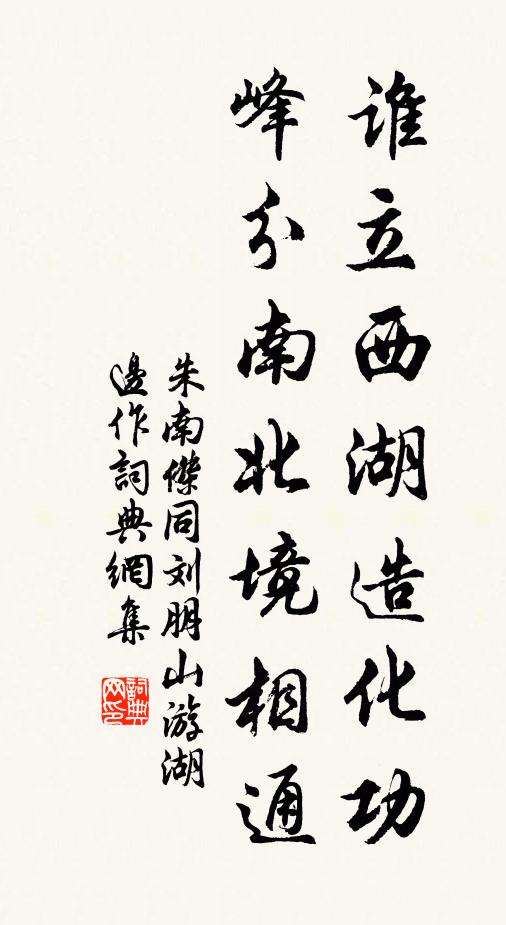 谁立西湖造化功
峰分南北境相通
朱南傑同刘朋山游湖
邊作詞典網集
詞典网印